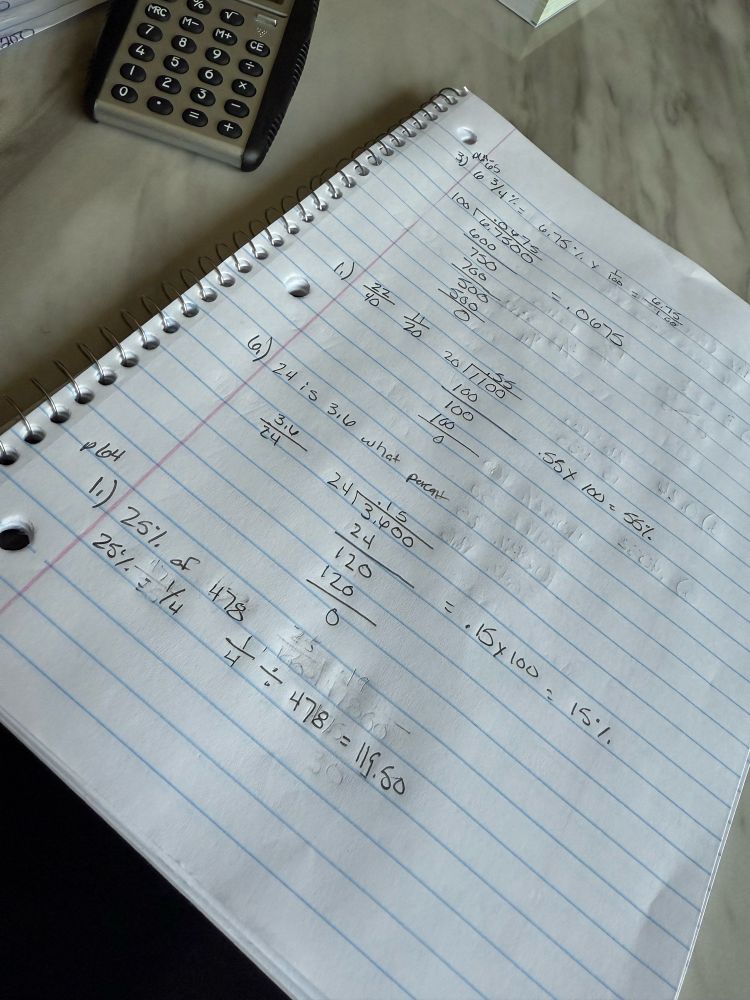 % √
MRC M- M+ CE
7 8 9 ÷
4 5 6 ×
1 2 3 -
0 . = +
3) 6 3/4% = 6.75% x 1/100 = 6.75/100
.0675
100 6.7500
600
750
700
500
500
0
= .0675
1.) 22/40 11/20
.55
20 1100
100
100
100
0
.55 x 100 = 55%
6.) 24 is 3.6 what percent
3.6/24
.15
24 3.600
24
120
120
0
= .15 x 100 = 15%
p 164
11.) 25% of 478
25% = 1/4
1/4 ÷ 478 = 119.50